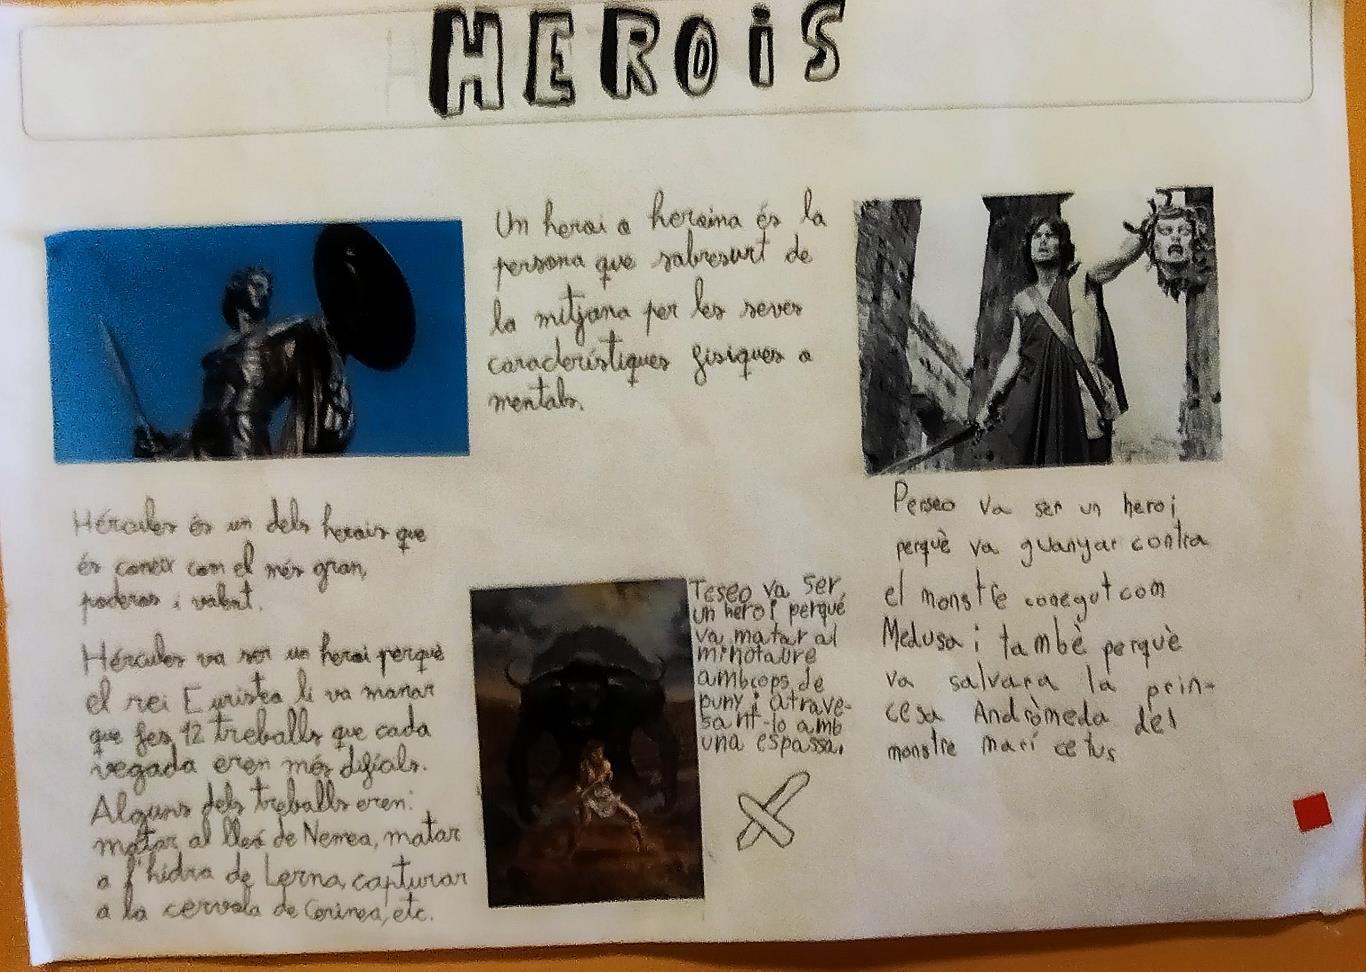 HEROIS
Un heroi o heroina és la
persona que sobresurt de
la mitjana per les seves
característiques físiques o
mentals.
Hércules és un dels herois que
és coneix com el més gran,
poderos i valent.
Hércules va ser un heroi perquè
el rei Euristea li va manar
que fes 12 treballs que cada
vegada eren més difícials.
Alguns dels treballs eren:
matar al lleó de Nemea, matar
a l'hidra de Lerna, capturar
a la cervola de Cerinea, etc.
Teseo va ser,
un heroi perquè
va matar al
minotaure
amb cops de
puny i atrave-
sant-lo amb
una espassa.
Perseo va ser un heroi
perquè va guanyar contra
el monstre conegut com
Medusa i també perquè
va salvara la prin-
cesa Andròmeda del
monstre marí cetus